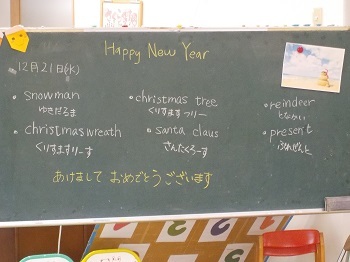 Happy New Year
12月21日(水)
• snowman
ゆきだるま
• christmas tree
くりすますつりー
• reindeer
となかい
• christmas wreath
くりすますりーす
• santa claus
さんたくろーす
• present
ぷれぜんと
あけまして おめでとうございます
2